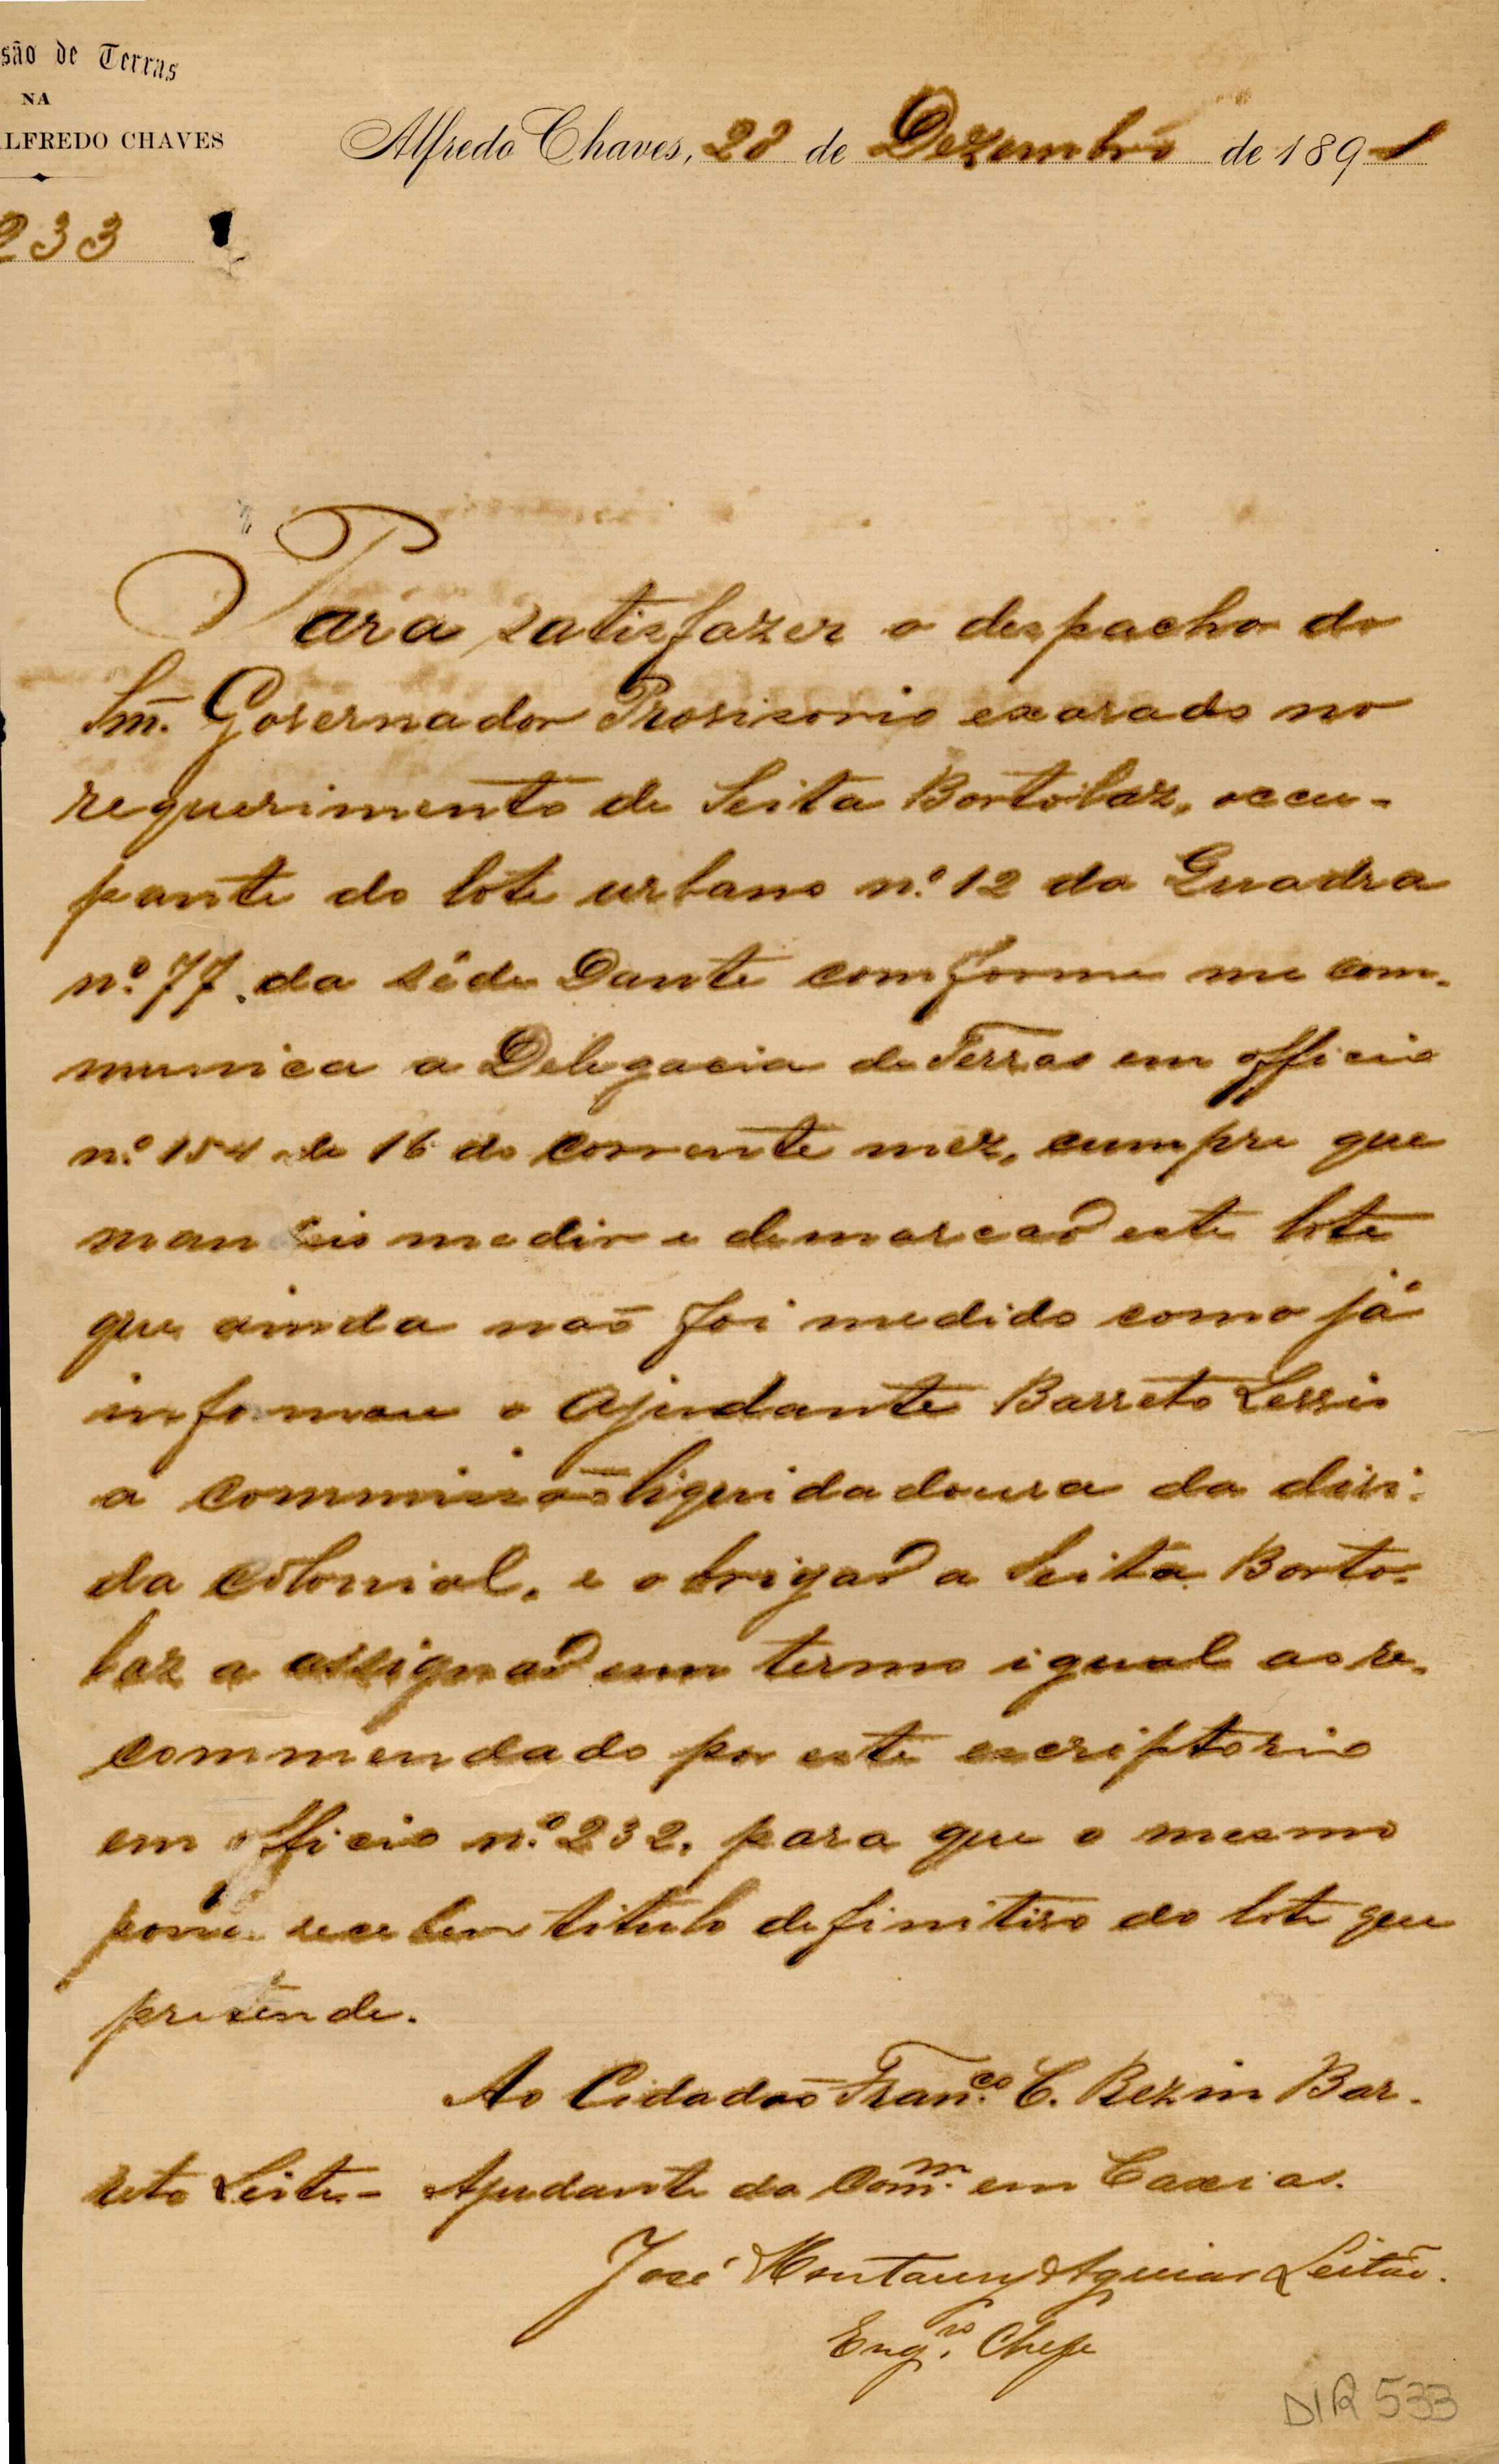 são de Terras
NA
LFREDO CHAVES
Alfredo Chaves, 28 de Dezembro de 1891
233
Para satisfazer o despacho do
Snr. Governador Provisorio exarado no
requerimento de Seita Bortolaz, occu-
pante do lote urbano n.º 12 da Quadra
n.º 77. da séde Dante comforme me com-
munica a Delegacia de Terras em officio
n.º 154 de 16 do corrente mez, cumpre que
mandeis medir e demarcar este lote
que ainda naõ foi medido como já
informou o ajudante Barreto
a commissaõ liquidadoura da divi-
da colonial, e obrigar a Seita Borto-
laz a assignar um termo igual ao re-
commendado por este escriptorio
em officio n.º 232. para que o mesmo
possa receber titulo definitivo do lote que
pretende.
Ao Cidadaõ Fran.co C. Rezin Bar-
reto Leite - Ajudante da Com.m em Caxias.
José Montaury Aguiar Leitão.
Eng.ro Chefe
DIR 533